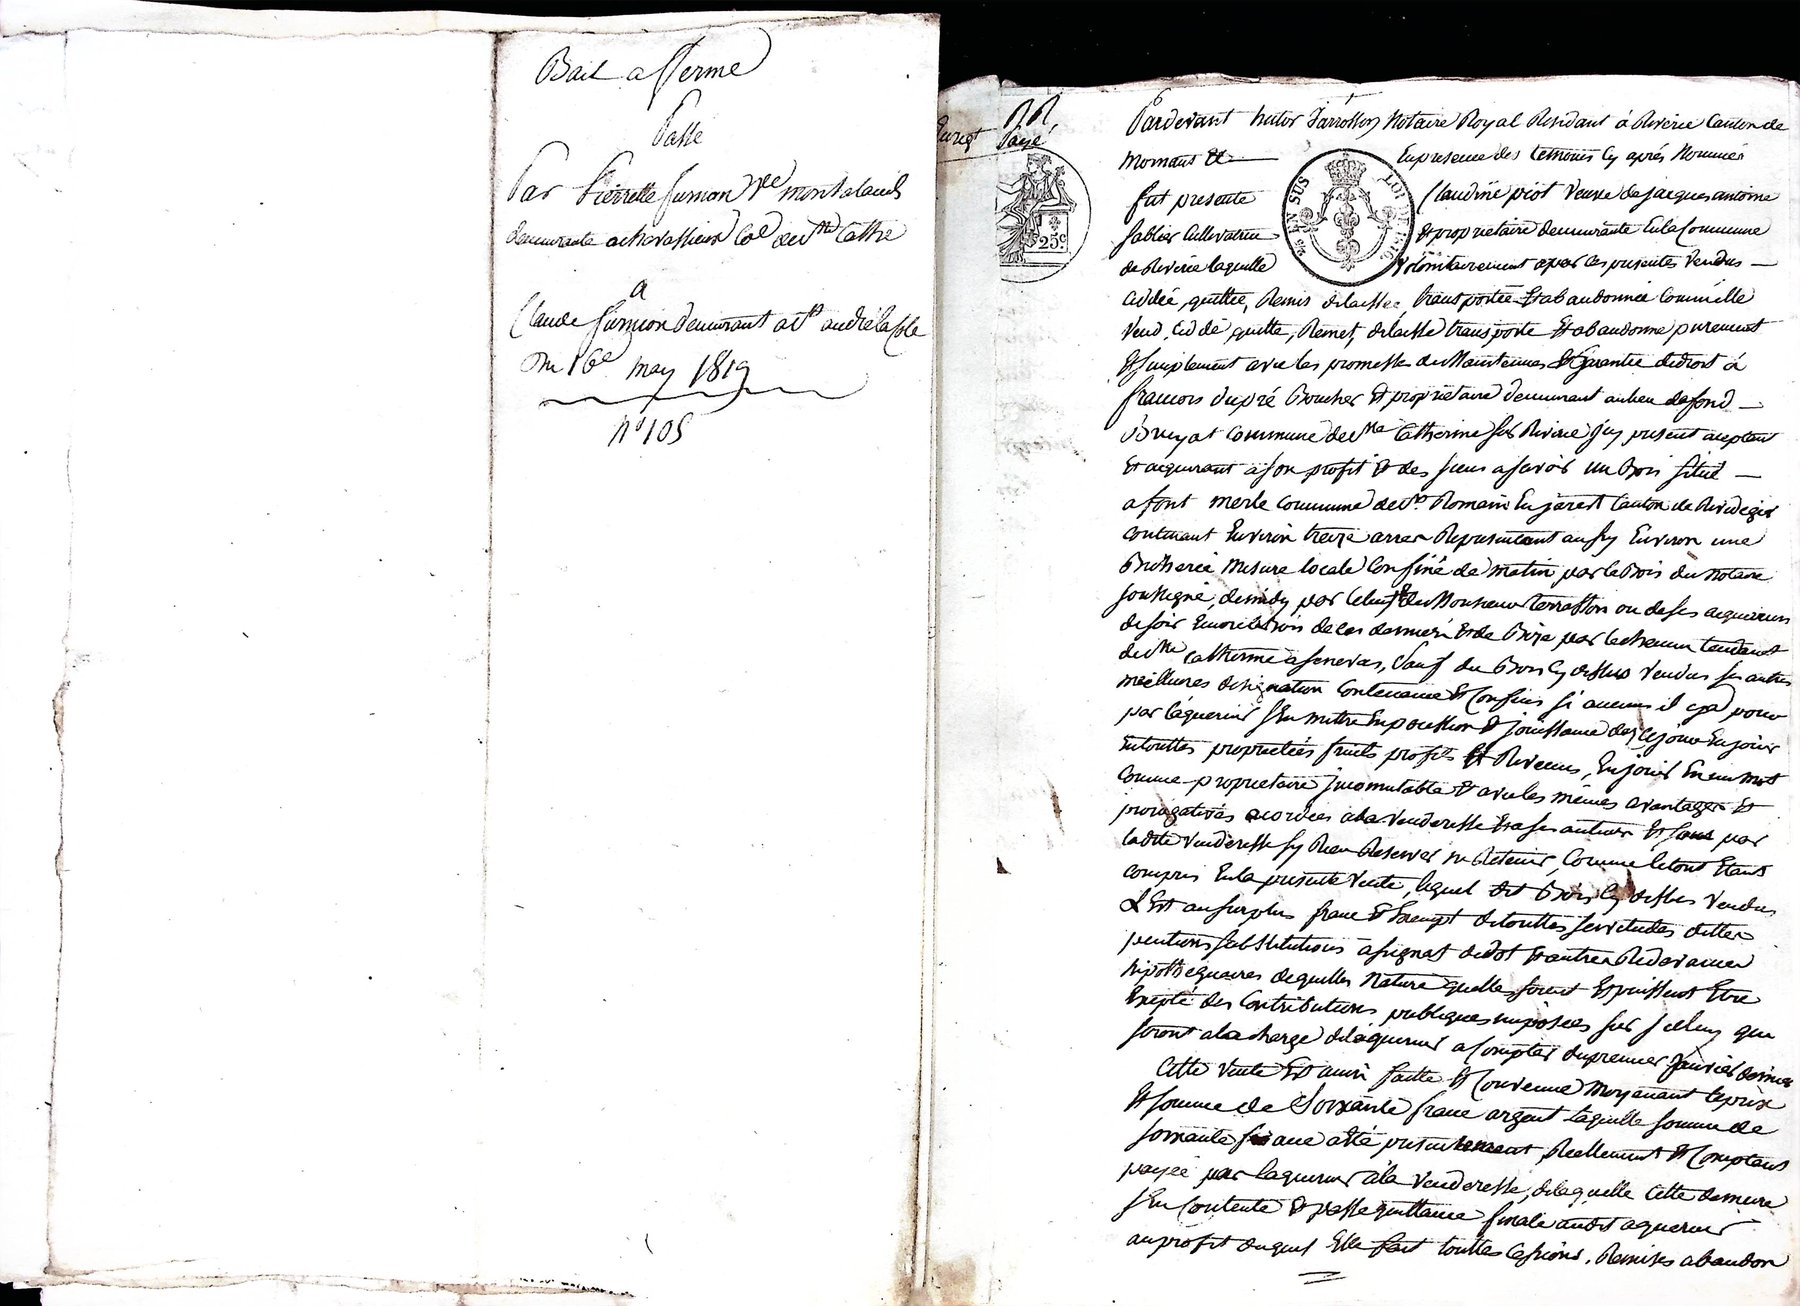 Bail a fferme
Passé
Par Pierrette Jumon Vve montaland
demeurante a chavassieux Coe de Ste Cathe
a
Claude Jumion demeurant a St andré la Cole
Du 16e may 1819
No 105
Enregt Payé
25c
EN SUS LOI DE 1816
Pardevant notaire Royal Residant à Riverie Canton de
Mornant &
En presence des temoins Cy aprés Nommés
fut presente
Claudine piot Veuve de jacques antoine
sablier Cultivatrice
Et proprietaire demeurante En la Commune
de Riverie laquelle
volontairement a par ces presentes Vendus
cédée, quittée, Remis delaissée, transportée Et abandonnée Comm'elle
Vend, Cédé, quitte, Remet, delaisse transporte Et abandonne purement
Et simplement avec les promesse de Maintenues Et Garentie de droit à
francois dupré Boucher Et propriétaire demeurant au lieu de fond
Bruyat Commune de Ste Catherine sur Riverie Jcy present aceptant
Et aquerant a son profit Et des siens a savoir un Bois situé
a font merle commune de St Romain En jarest Canton de Rivedegier
contenant Environ treize arres Representant aussy Environ une
Bicherée mesure locale Confiné de matin par le Bois du Notaire
soussigné, de midy par Celuy de Monsieur terrasson ou de ses aquereurs
de soir Encore le Bois de ces derniers Et de Bize par le chemin tendant
de Ste Catherine a senevas, Sauf du Bois Cy dessus Vendus ses autres
meilleures designation Contenance Et Confins si aucuns il y a pour
par laquereur s'En mettre En possession Et jouissance des ce jour En jouir
En touttes proprietées fruits profits Et Revenus, En jouir En un mot
Comme proprietaire jncomutable Et avec les mêmes avantages Et
prorogatives acordées a la venderesse Et a ses auteurs Et sans par
ladite Venderesse s'y Rien Reserver ni Retenir, Comme le tout Etant
compris En la presente Vente, lequel dit Bois Cy dessus Vendus
Est au surplus franc Et Exempt de touttes servitudes dettes
pentions substitutions asignat de dot Et autres Redevances
hipothequaires de quelles Nature quelles soient Et puissent Etre
Exepté des Contributions publiques imposées sur jcelluy qui
seront a la charge de laquereur a Compter du premier Janvier dernier
Cette vente Est ainsi faitte Et Convenue Moyenant le prix
Et somme de Soixante franc argent laquelle somme de
soixante franc a été presentement, Reellement Et Comptant
payée par laquereur à la Venderesse, de laquelle Cette derniere
s'En Contente Et passe quittance finale audit aquereur
au profit duquel Elle fait touttes Cessions, Remises abandon